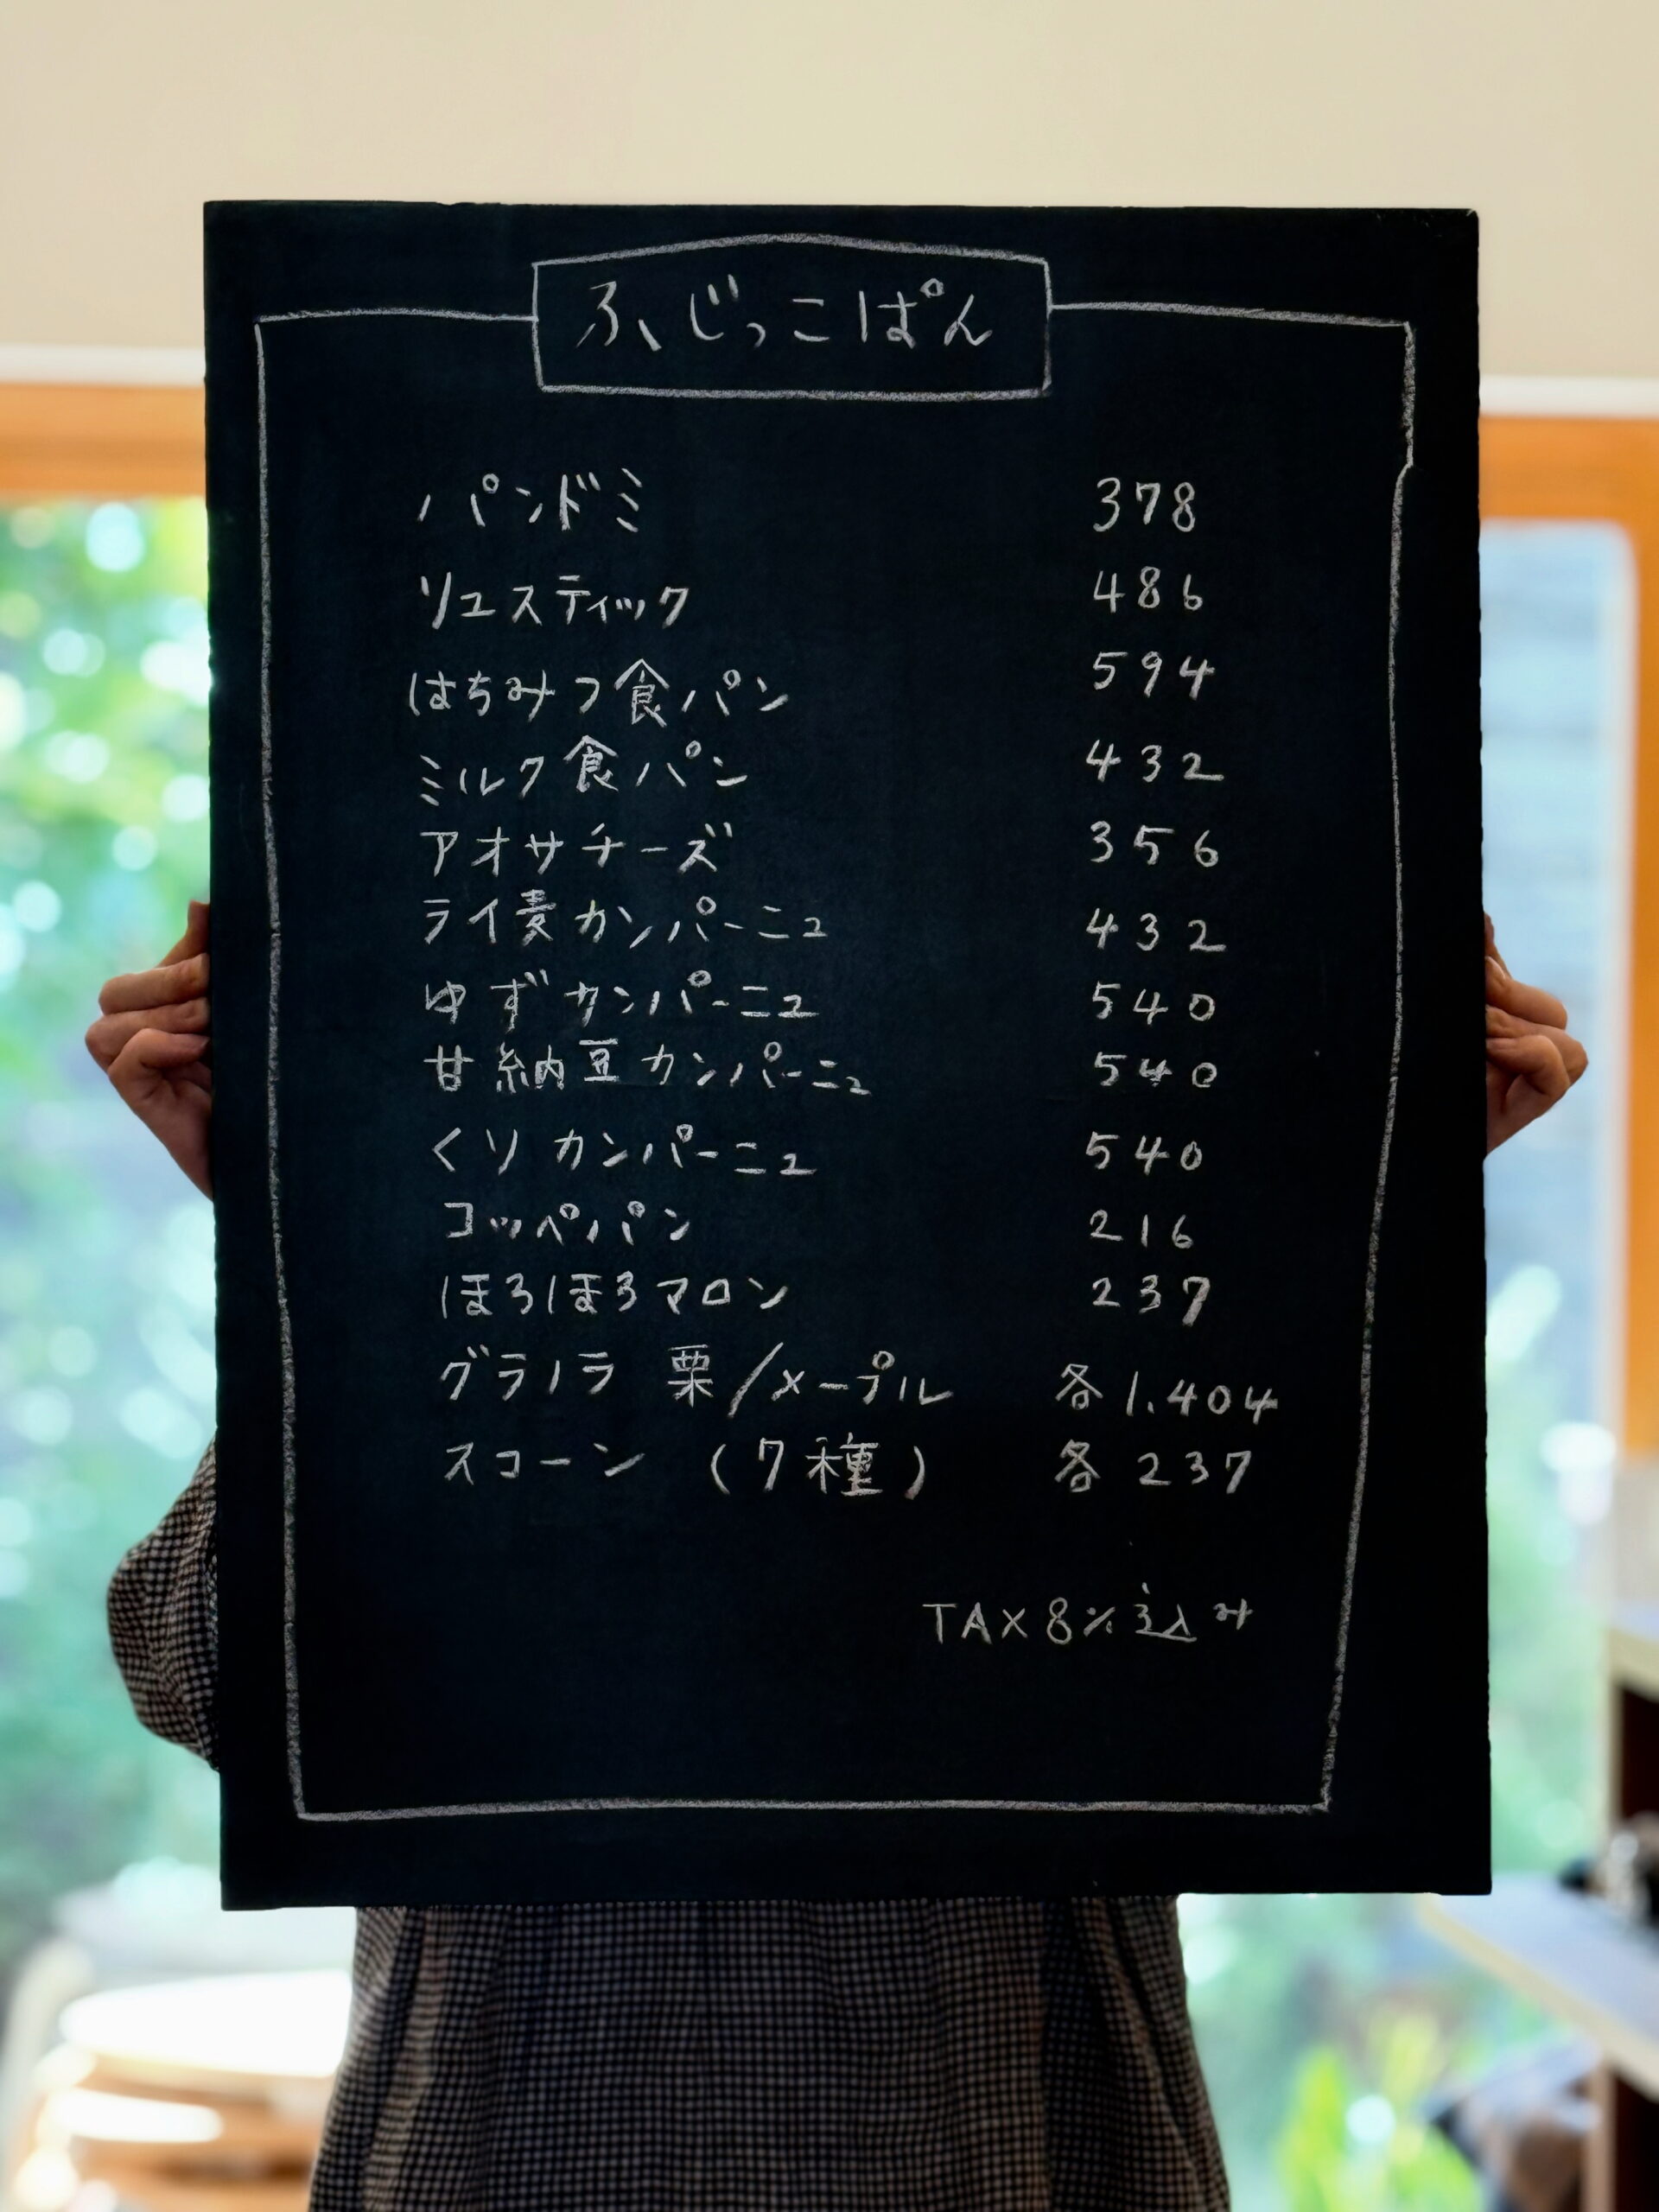 ふじっこぱん
パンドミ 378
リュスティック 486
はちみつ食パン 594
ミルク食パン 432
アオサチーズ 356
ライ麦カンパーニュ 432
ゆずカンパーニュ 540
甘納豆カンパーニュ 540
くりカンパーニュ 540
コッペパン 216
ほろほろマロン 237
グラノラ 栗/メープル 各1.404
スコーン (7種) 各237
TAX8%込み